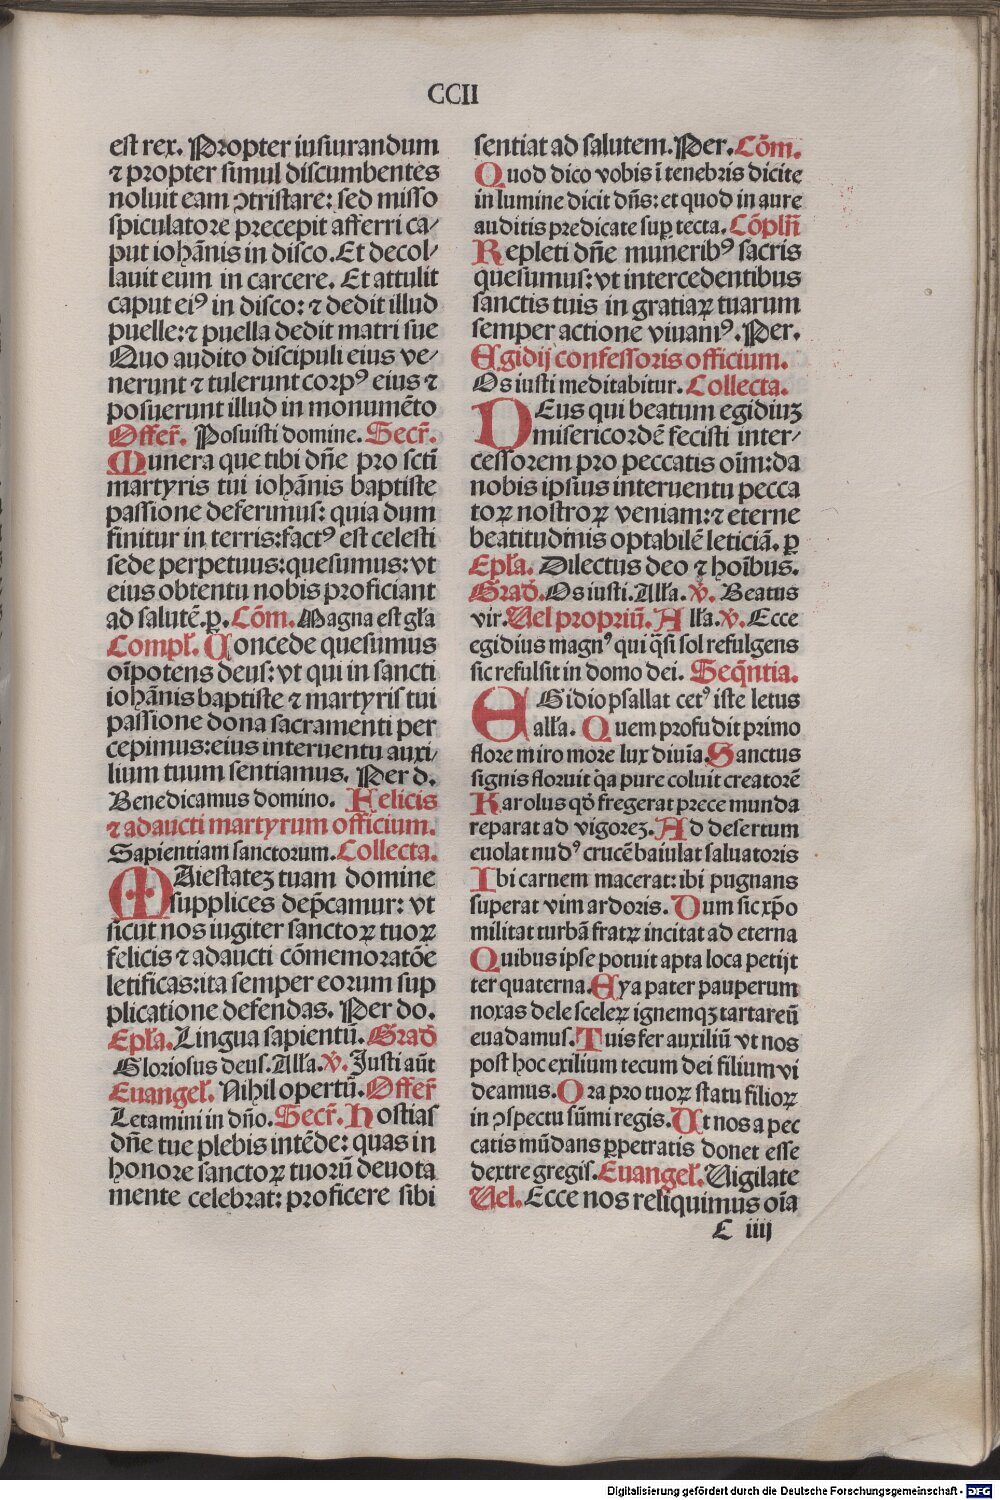 CCII
est rex. Propter iusiurandum
⁊ propter simul discumbentes
noluit eam ↄtristare: sed misso
spiculatore precepit afferri ca⸗
put iohãnis in disco. Et decol⸗
lauit eum in carcere. Et attulit
caput eiꝰ in disco: ⁊ dedit illud
puelle: ⁊ puella dedit matri sue
Quo audito discipuli eius ve⸗
nerunt ⁊ tulerunt corpꝰ eius ⁊
posuerunt illud in monumẽto
Offer̃. Posuisti domine. Secr̃.
Munera que tibi dñe pro sctĩ
martyris tui iohãnis baptiste
passione deferimus: quia dum
finitur in terris: factꝰ est celesti
sede perpetuus: quesumus: vt
eius obtentu nobis proficiant
ad salutẽ. ꝑ. Cõm. Magna est gła
Compł. Concede quesumus
oĩpotens deus: vt qui in sancti
iohãnis baptiste ⁊ martyris tui
passione dona sacramenti per
cepimus: eius interuentu auxi⸗
lium tuum sentiamus. Per d.
Benedicamus domino. Felicis
⁊ adaucti martyrum officium.
Sapientiam sanctorum. Collecta.
MAiestateꝫ tuam domine
supplices dep̃camur: vt
sicut nos iugiter sanctoꝝ tuoꝝ
felicis ⁊ adaucti cõmemoratõe
letificas: ita semper eorum sup
plicatione defendas. Per do.
Epła. Lingua sapientũ. Grad̃
Gloriosus deus. Alła. ℣. Justi aũt
Euangeł. Nihil opertũ. Offer̃
Letamini in dño. Secr̃. Hostias
dñe tue plebis intẽde: quas in
honore sanctoꝝ tuorũ deuota
mente celebrat: proficere sibi
sentiat ad salutem. Per. Cõm.
Quod dico vobis ĩ tenebris dicite
in lumine dicit dñs: et quod in aure
auditis predicate suꝑ tecta. Cõplñ
Repleti dñe muneribꝰ sacris
quesumus: vt intercedentibus
sanctis tuis in gratiaꝝ tuarum
semper actione viuamꝰ. Per.
Egidij confessoris officium.
Os iusti meditabitur. Collecta.
DEus qui beatum egidiuꝫ
misericordẽ fecisti inter⸗
cessorem pro peccatis oĩm: da
nobis ipsius interuentu pecca
toꝝ nostroꝝ veniam: ⁊ eterne
beatitudinis optabilẽ leticiã. ꝑ
Epła. Dilectus deo ⁊ hoĩbus.
Grad̃. Os iusti. Alła. ℣. Beatus
vir. Vel propriũ. Alła. ℣. Ecce
egidius magnꝰ qui q̃si sol refulgens
sic refulsit in domo dei. Seq̃ntia.
EGidio psallat cetꝰ iste letus
alła. Quem profudit primo
flore miro more lux diuĩa. Sanctus
signis floruit q̃a pure coluit creatorẽ
Karolus qđ fregerat prece munda
reparat ad vigoreꝫ. Ad desertum
euolat nudꝰ crucẽ baiulat saluatoris
Ibi carnem macerat: ibi pugnans
superat vim ardoris. Dum sic xp̃o
militat turbã fratꝝ incitat ad eterna
Quibus ipse potuit apta loca petijt
ter quaterna. Eya pater pauperum
noxas dele sceleꝝ ignemqꝫ tartareũ
euadamus. Tuis fer auxiliũ vt nos
post hoc exilium tecum dei filium vi
deamus. Ora pro tuoꝝ statu filioꝝ
in ↄspectu sũmi regis. Ut nos a pec
catis mũdans ꝑpetratis donet esse
dextre gregis. Euangeł. Vigilate
Vel. Ecce nos reliquimus oĩa
C iiij
Digitalisierung gefördert durch die Deutsche Forschungsgemeinschaft - DFG